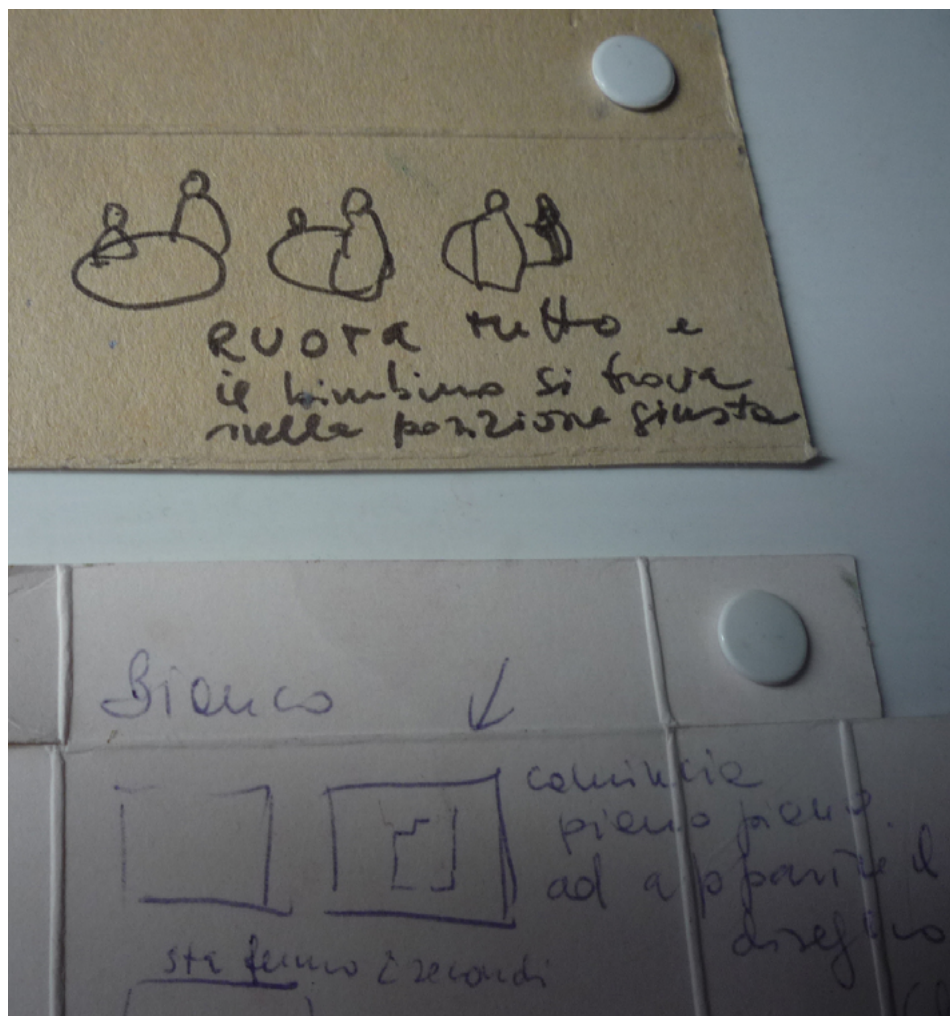 RUOTA tutto e
il bimbino si trova
nella posizione giusta
Bianco
comincia
piano piano
ad apparire il
disegno
sta fermo 2 secondi